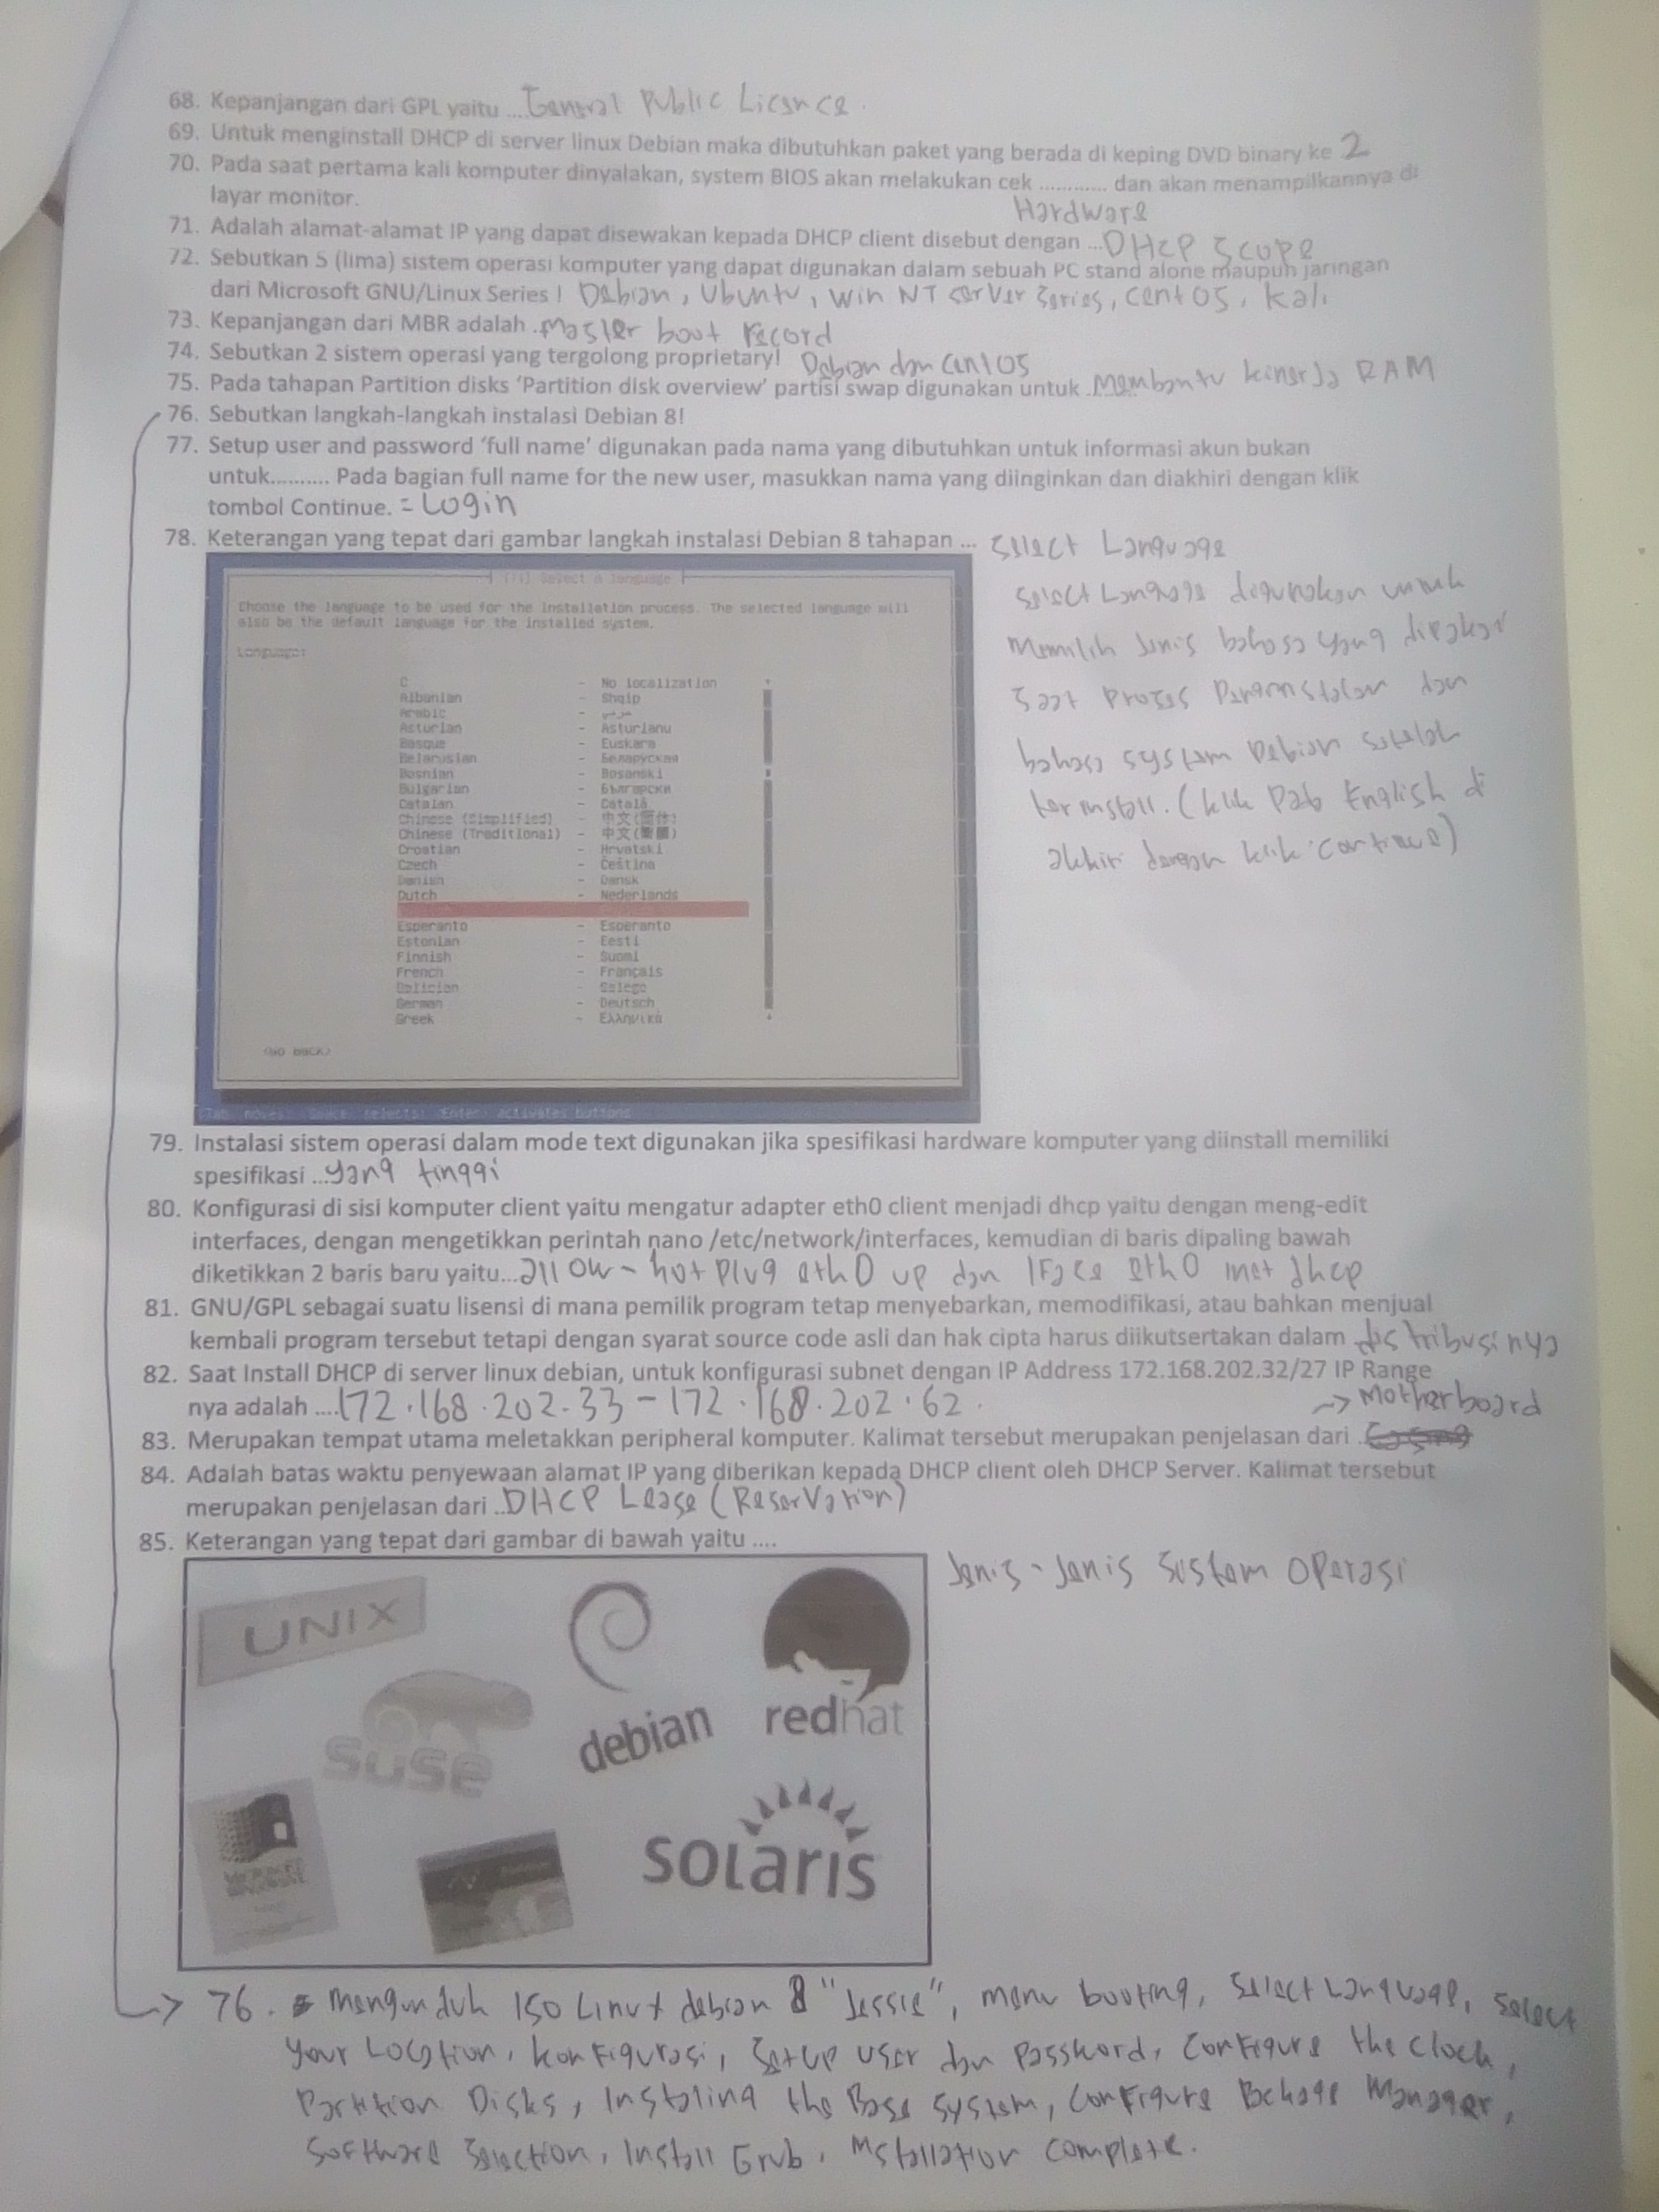 68. Kepanjangan dari GPL yaitu ... General Public Licence.
69. Untuk menginstall DHCP di server linux Debian maka dibutuhkan paket yang berada di keping DVD binary ke 2
70. Pada saat pertama kali komputer dinyalakan, system BIOS akan melakukan cek ............ dan akan menampilkannya di
layar monitor.
Hardware
71. Adalah alamat-alamat IP yang dapat disewakan kepada DHCP client disebut dengan ... DHCP Scope
72. Sebutkan 5 (lima) sistem operasi komputer yang dapat digunakan dalam sebuah PC stand alone maupun jaringan
dari Microsoft GNU/Linux Series ! Debian, Ubuntu, Win NT Server Series, CentOS, Kali
73. Kepanjangan dari MBR adalah . Master boot record
74. Sebutkan 2 sistem operasi yang tergolong proprietary! Debian dan CentOS
75. Pada tahapan Partition disks 'Partition disk overview' partisi swap digunakan untuk ... Membantu kinerja RAM
76. Sebutkan langkah-langkah instalasi Debian 8!
77. Setup user and password 'full name' digunakan pada nama yang dibutuhkan untuk informasi akun bukan
untuk.......... Pada bagian full name for the new user, masukkan nama yang diinginkan dan diakhiri dengan klik
tombol Continue. = Login
78. Keterangan yang tepat dari gambar langkah instalasi Debian 8 tahapan ... Select Language
Select Language digunakan untuk
Memilih Jenis bahasa yang dipakai
Saat proses Penginstalan dan
bahasa system Debian setelah
terinstall. (klik Pada English di
akhiri dengan klik continue)
[!!] Select a language
Choose the language to be used for the installation process. The selected language will
also be the default language for the installed system.
Language:
C - No localization
Albanian - Shqip
Arabic - عربي
Asturian - Asturianu
Basque - Euskara
Belarusian - Беларуская
Bosnian - Bosanski
Bulgarian - Български
Catalan - Català
Chinese (Simplified) - 中文(简体)
Chinese (Traditional) - 中文(繁體)
Croatian - Hrvatski
Czech - Čeština
Danish - Dansk
Dutch - Nederlands
Esperanto - Esperanto
Estonian - Eesti
Finnish - Suomi
French - Français
Galician - Galego
German - Deutsch
Greek - Ελληνικά
<Go Back>
<Tab> moves; <Space> selects; <Enter> activates buttons
79. Instalasi sistem operasi dalam mode text digunakan jika spesifikasi hardware komputer yang diinstall memiliki
spesifikasi ... yang tinggi
80. Konfigurasi di sisi komputer client yaitu mengatur adapter eth0 client menjadi dhcp yaitu dengan meng-edit
interfaces, dengan mengetikkan perintah nano /etc/network/interfaces, kemudian di baris dipaling bawah
diketikkan 2 baris baru yaitu... allow-hotplug eth0 up dan IFace eth0 inet dhcp
81. GNU/GPL sebagai suatu lisensi di mana pemilik program tetap menyebarkan, memodifikasi, atau bahkan menjual
kembali program tersebut tetapi dengan syarat source code asli dan hak cipta harus diikutsertakan dalam distribusinya
82. Saat Install DHCP di server linux debian, untuk konfigurasi subnet dengan IP Address 172.168.202.32/27 IP Range
nya adalah .... 172.168.202.33 - 172.168.202.62.
→ Motherboard
83. Merupakan tempat utama meletakkan peripheral komputer. Kalimat tersebut merupakan penjelasan dari .
84. Adalah batas waktu penyewaan alamat IP yang diberikan kepada DHCP client oleh DHCP Server. Kalimat tersebut
merupakan penjelasan dari .. DHCP Lease (Reservation)
85. Keterangan yang tepat dari gambar di bawah yaitu ....
Jenis-Jenis Sistem Operasi
UNIX
debian
redhat
SUSE
solaris
76. Mengunduh ISO Linux debian 8 "Jessie", menu booting, Select Language, Select
your Location, konfigurasi, Setup user dan Password, Configure the clock,
Partition Disks, Instaling the Base system, Configure Package Manager,
Software Selection, Install Grub, Installation complete.